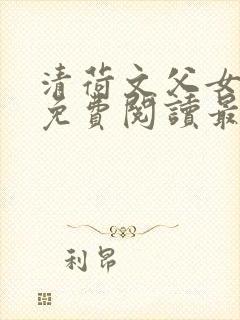 清荷文父女
免費閱讀最
利昂